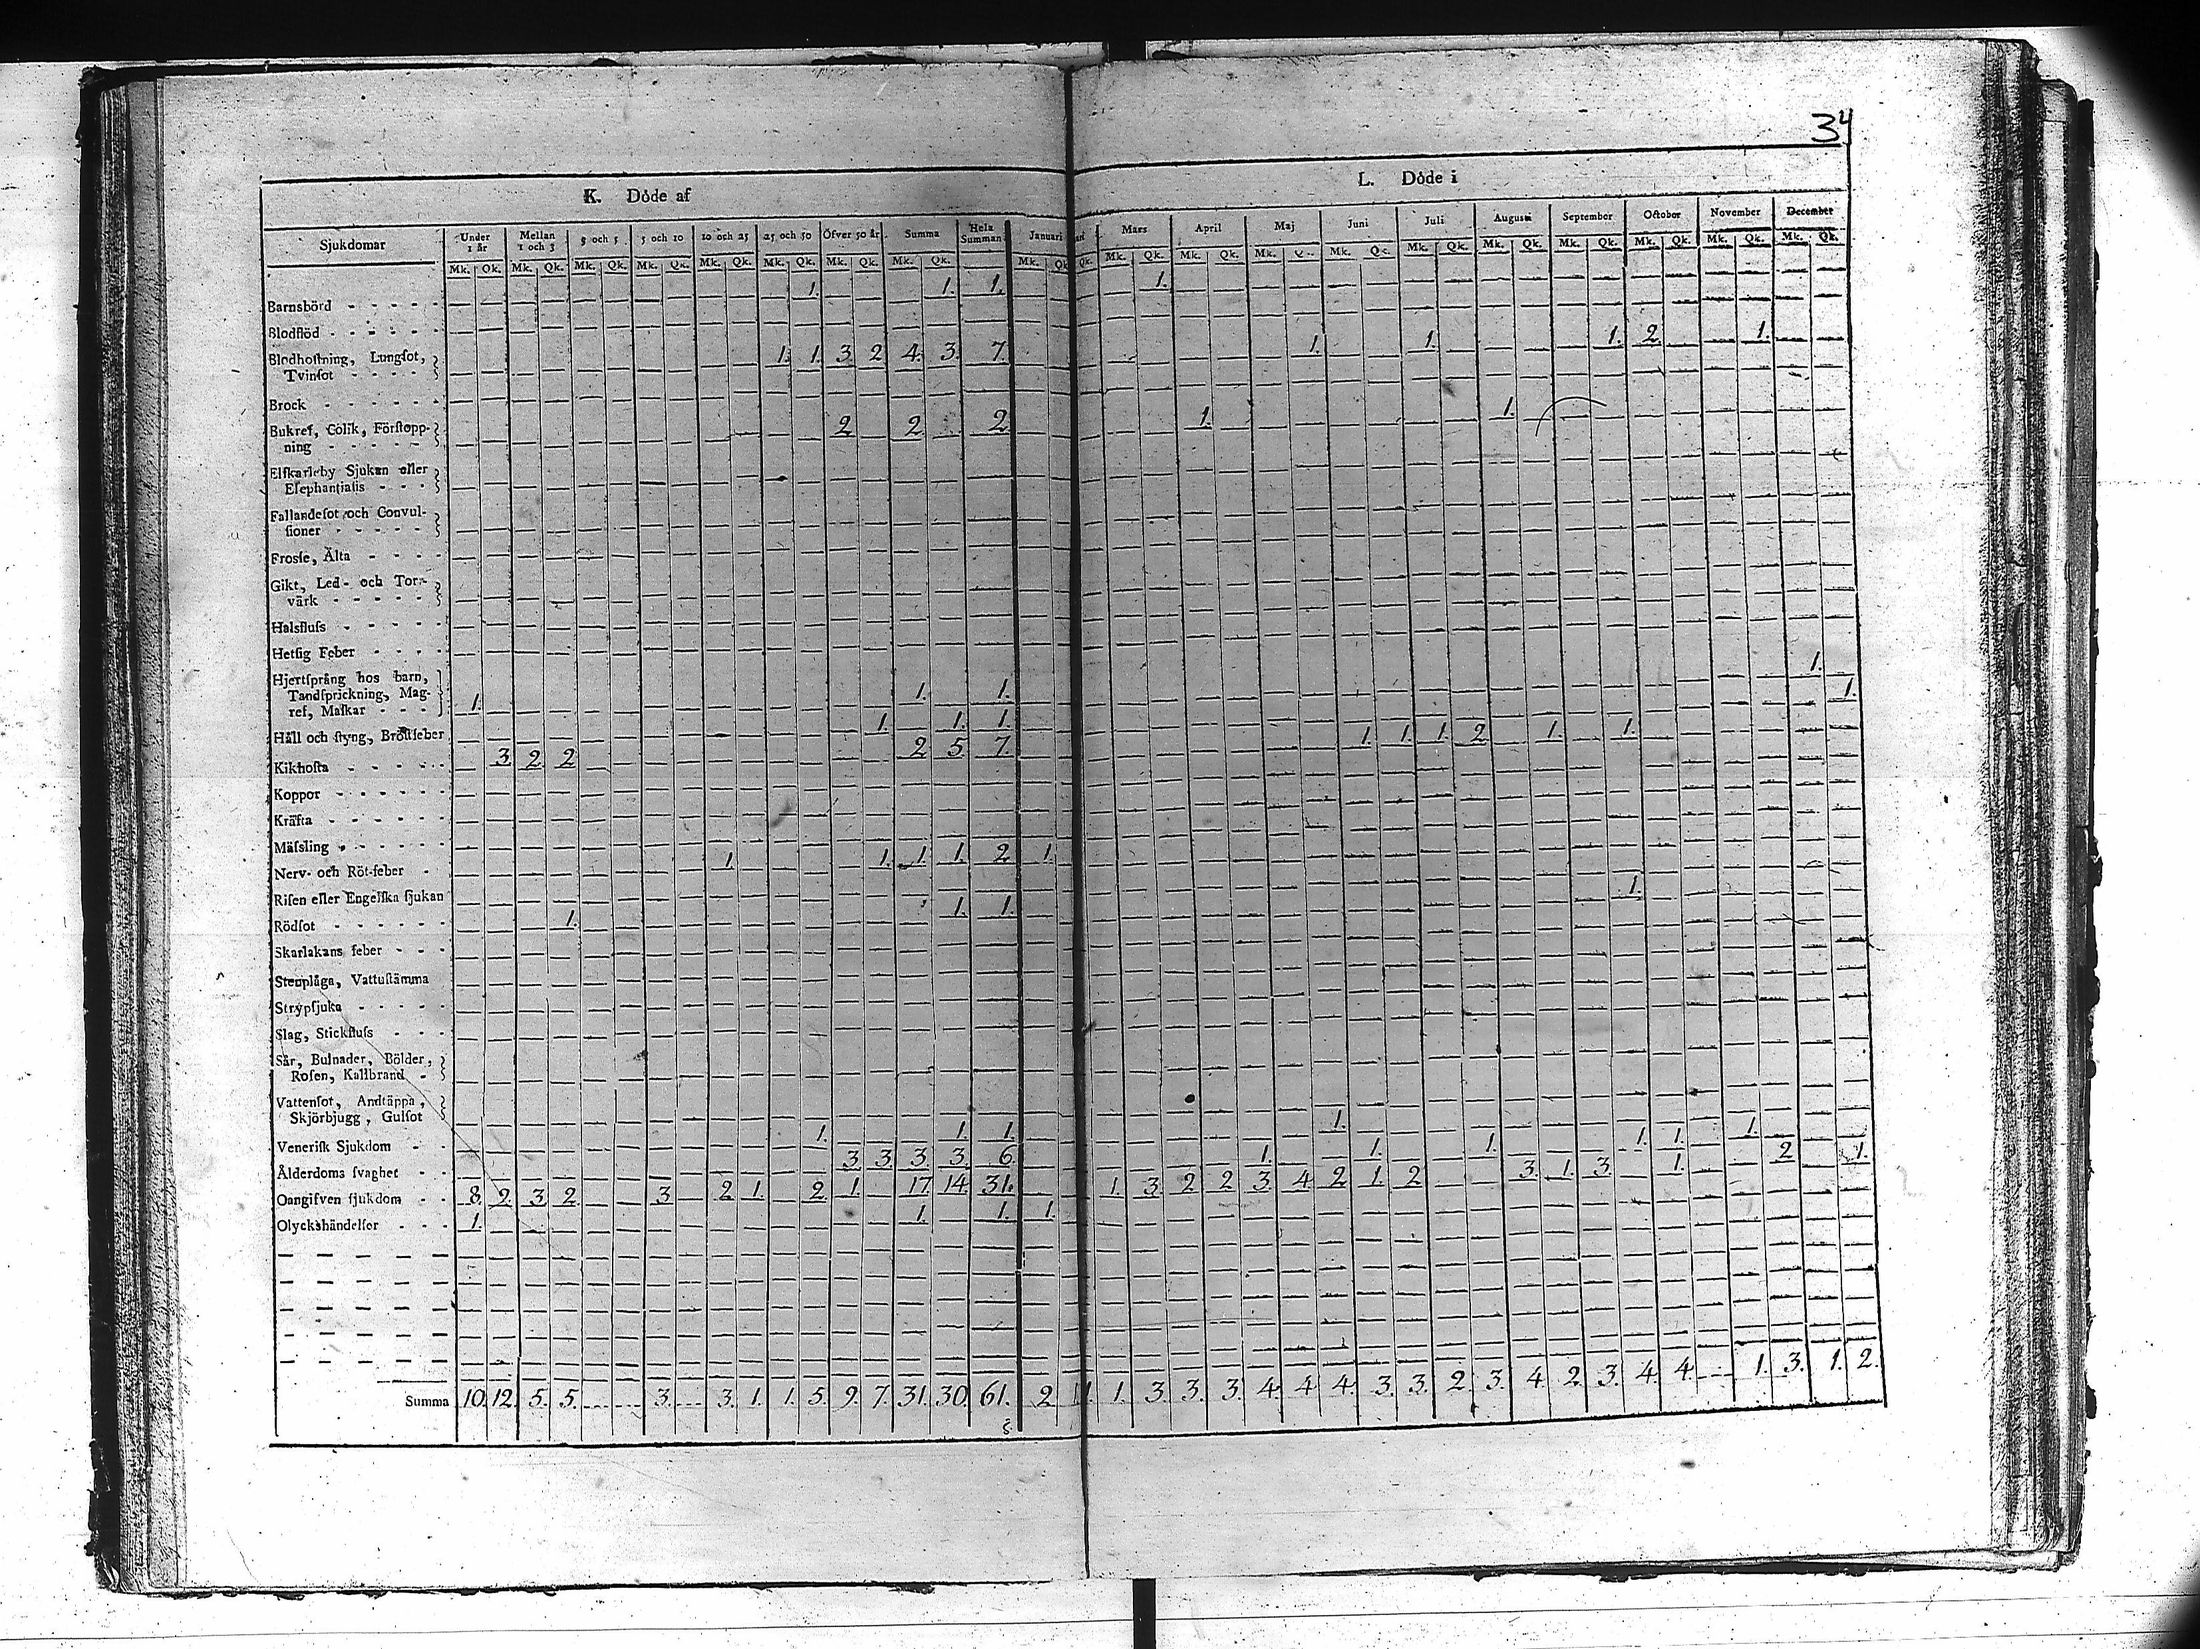 34
K. Döde af
L. Döde i
Sjukdomar Under 1 år Mellan 1 och 3 3 och 5 5 och 10 10 och 25 25 och 50 Öfver 50 år Summa Hela Summan Januari Mars April Maj Juni Juli Augusti September October November December
Mk. Qk. Mk. Qk. Mk. Qk. Mk. Qk. Mk. Qk. Mk. Qk. Mk. Qk. Mk. Qk. Mk. Qk. Qk. Mk. Qk. Mk. Qk. Mk. Mk. Qk. Mk. Qk. Mk. Qk. Mk. Qk. Mk. Qk. Mk. Qk. Mk. Qk.
Barnsbörd 1. 1. 1. 1.
Blodflöd
Blodhoſtning, Lungſot, 1. 1. 3. 2 4. 3. 7. 1. 1. 1. 2. 1.
Tvinſot
Brock
Bukref, Colik, Förſtopp- 2 2. 2. 1. 1.
ning
Elſkarleby Sjukan eller
Elephantiaſis
Fallandeſot och Convul-
ſioner
Frosſe, Älta
Gikt, Led- och Tor-
värk
Halsfluſs
Hetſig Feber
Hjertſprång hos barn,
Tandſprickning, Mag-
ref, Maſkar 1. 1. 1. 1.
Håll och ſtyng, Bröſtfeber 1. 1. 1. 1.
Kikhoſta 3. 2. 2. 2. 5. 7. 1. 1. 1. 2. 1. 1.
Koppor
Kräfta
Mäſsling
Nerv- och Röt-feber 1. 1. 1. 1. 2 1.
Riſen eller Engelſka ſjukan
Rödſot 1. 1. 1. 1.
Skarlakans feber
Stenplåga, Vattuſtämma
Strypſjuka
Slag, Stickfluſs
Sår, Bulnader, Bölder,
Roſen, Kallbrand
Vattenſot, Andtäppa,
Skjörbjugg, Gulſot
Veneriſk Sjukdom 1. 1. 1. 1.
Ålderdoms ſvaghet 3. 3. 3. 3. 6. 1. 1. 1. 1. 1. 1.
Oangifven ſjukdom 8. 2. 3. 2. 3. 2. 1. 2. 1. 17. 14. 31. 1. 3. 2 2 3. 4. 2. 1. 2. 3. 1. 3. 1. 2. 1.
Olyckshändelſer 1. 1. 1. 1.
Summa 10. 12. 5. 5. 3. 3. 1. 1. 5. 9. 7. 31. 30. 61. 2 1. 1. 3. 3. 3. 4. 4. 4. 3. 3. 2. 3. 4. 2. 3. 4. 4. 1. 3. 1. 2.